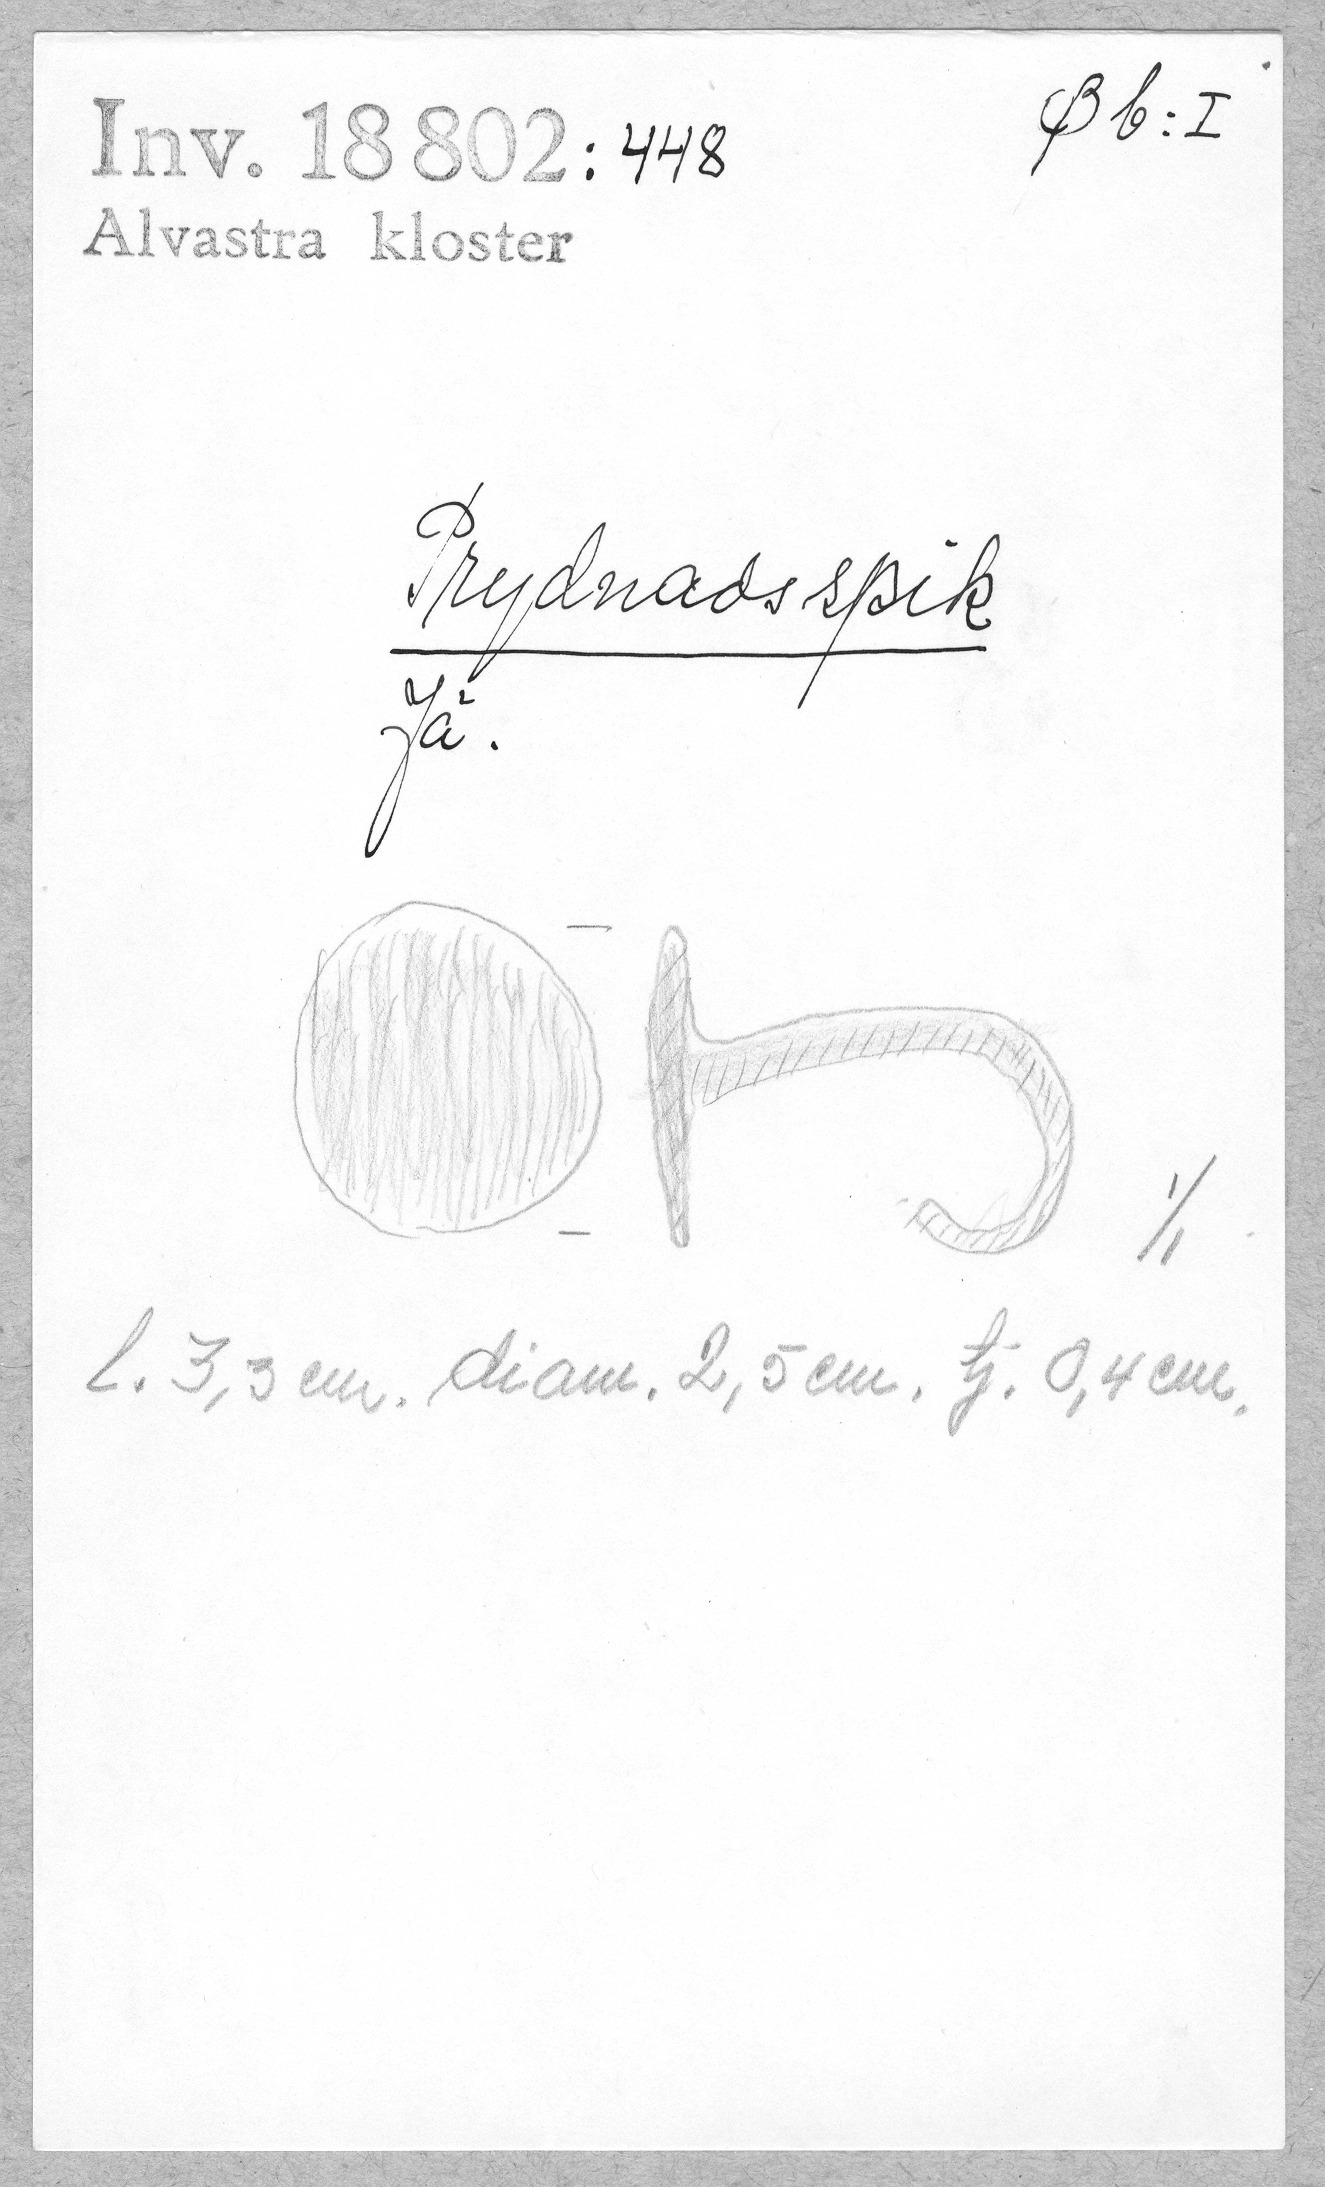 Inv. 18 802:448
Øb:I
Alvastra kloster
Prydnadsspik
Jä.
1/1
l. 3,3 cm. diam. 2,5 cm. tj. 0,4 cm.